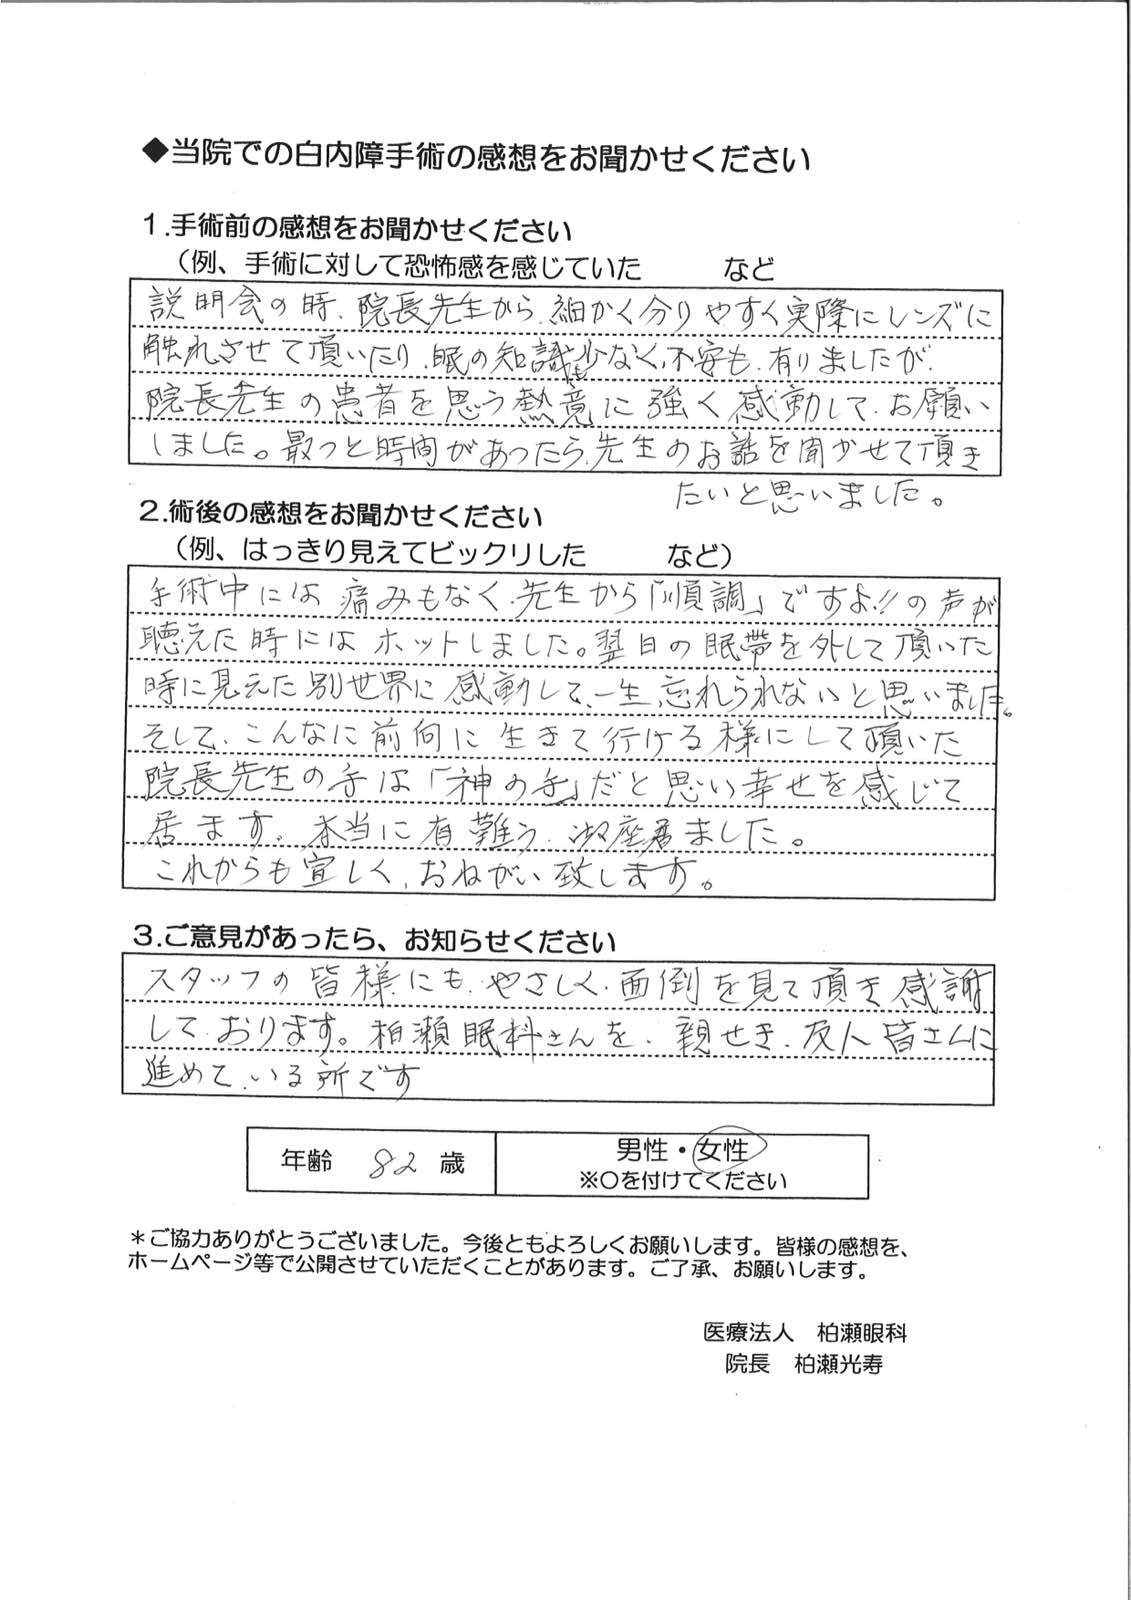 ◆当院での白内障手術の感想をお聞かせください
1.手術前の感想をお聞かせください
（例、手術に対して恐怖感を感じていた　　　など
説明会の時、院長先生から、細かく分りやすく実際にレンズに
触れさせて頂いたり、眼の知識も少なく、不安も、有りましたが、
院長先生の患者を思う熱意に強く感動して、お願い
しました。最っと時間があったら、先生のお話を聞かせて頂き
たいと思いました。
2.術後の感想をお聞かせください
（例、はっきり見えてビックリした　　　など）
手術中には痛みもなく、先生から「順調」ですよ!!の声が
聴えた時にはホットしました。翌日の眼帯を外して頂いた
時に見えた別世界に感動して、一生、忘れられないと思いました。
そして、こんなに前向に生きて行ける様にして頂いた
院長先生の手は「神の手」だと思い幸せを感じて
居ます。本当に有難う、御座居ました。
これからも宜しく、おねがい致します。
3.ご意見があったら、お知らせください
スタッフの皆様にも、やさしく、面倒を見て頂き感謝
して、おります。柏瀬眼科さんを、親せき、友人皆さんに
進めて、いる所です
年齢　82　歳
男性・女性
※○を付けてください
＊ご協力ありがとうございました。今後ともよろしくお願いします。皆様の感想を、
ホームページ等で公開させていただくことがあります。ご了承、お願いします。
医療法人　柏瀬眼科
院長　柏瀬光寿